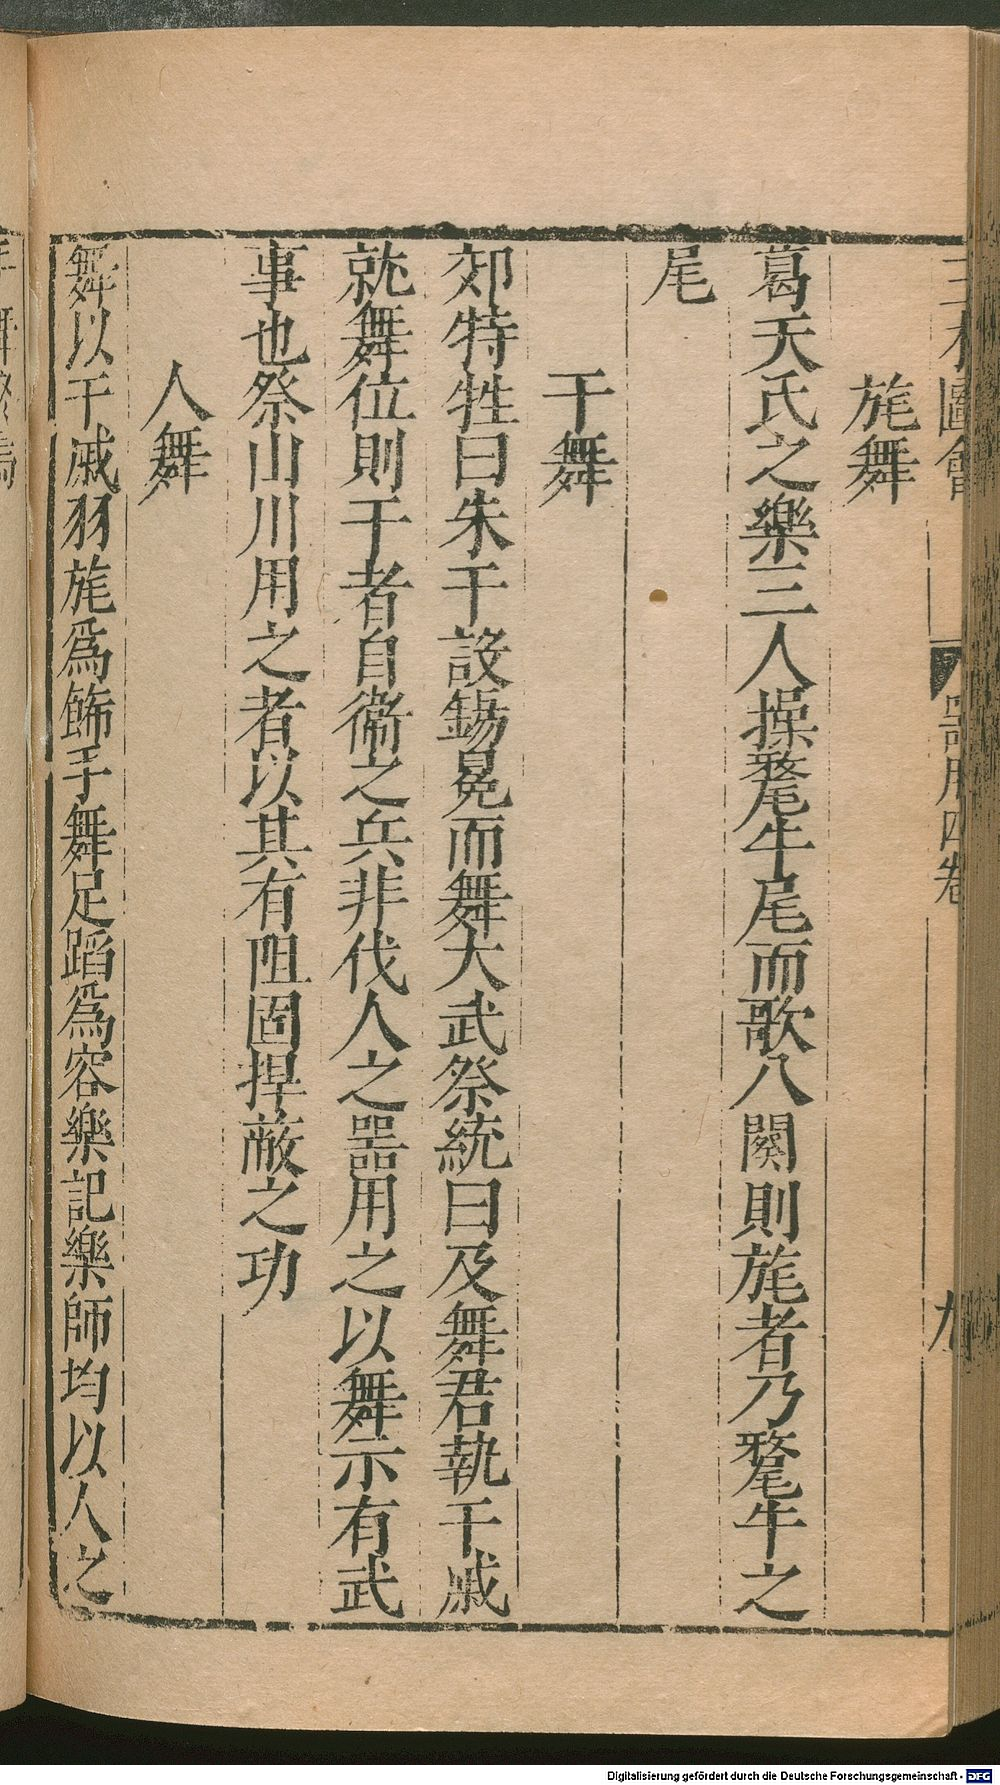 三才圖會 器用四卷 九
旄舞
葛天氏之樂三人操氂牛尾而歌八闋則旄者乃氂牛之
尾
干舞
郊特牲曰朱干設錫冕而舞大武祭統曰及舞君執干戚
就舞位則干者自衞之兵非伐人之器用之以舞示有武
事也祭山川用之者以其有阻固捍蔽之功
人舞
舞以干戚羽旄爲飾手舞足蹈爲容樂記樂師均以人之
Digitalisierung gefördert durch die Deutsche Forschungsgemeinschaft - DFG